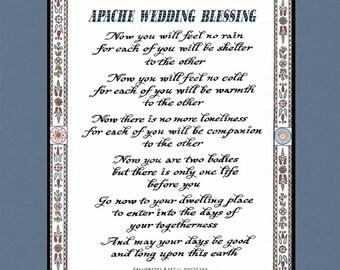 APACHE WEDDING BLESSING
Now you will feel no rain
for each of you will be shelter
to the other
Now you will feel no cold
for each of you will be warmth
to the other
Now there is no more loneliness
for each of you will be companion
to the other
Now you are two bodies
but there is only one life
before you
Go now to your dwelling place
to enter into the days of
your togetherness
And may your days be good
and long upon this earth